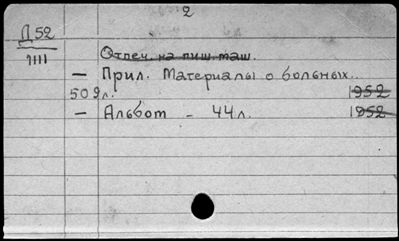 2
Д 52
1111
Отпеч. на пиш. маш.
— Прил. Материалы о больных..
509 л. 1952
— Альбом - 44 л. 1952